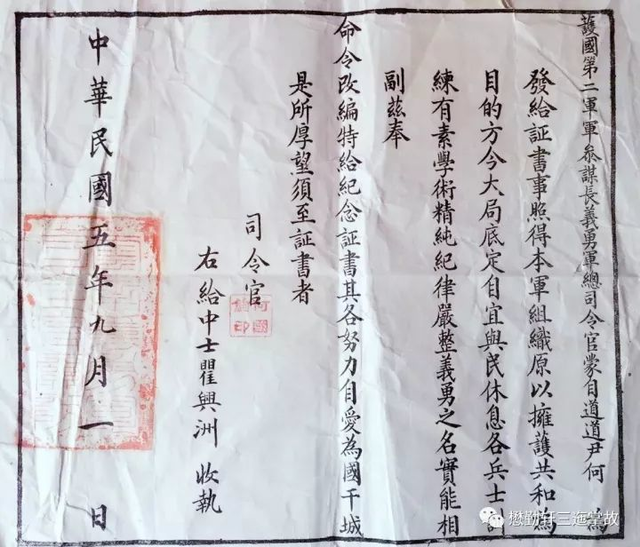 護國第二軍軍參謀長義勇軍總司令官蒙自道道尹何　為
發給証書事照得本軍組織原以擁護共和為
目的方今大局底定自宜與民休息各兵士訓
練有素學術精純紀律嚴整義勇之名實能相
副茲奉
命令改編特給紀念証書其各努力自愛為國干城
是所厚望須至証書者
司令官
何國
印
右給中士瞿興洲 收執
中華民國五年九月一日
懋勤轩三迤掌故